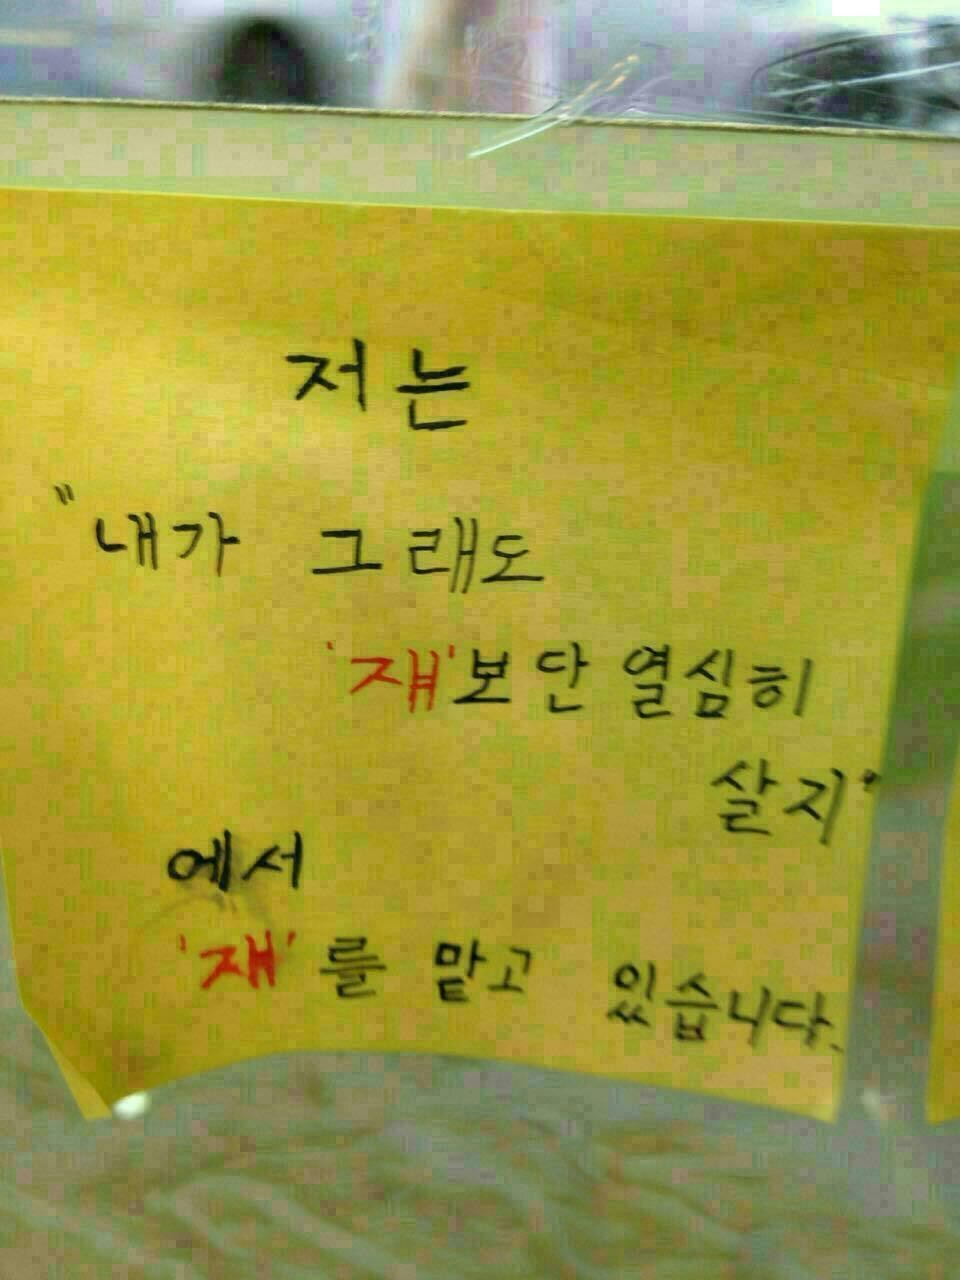 저는
"내가 그래도
'쟤'보단 열심히
살지"
에서
'쟤'를 맡고 있습니다.